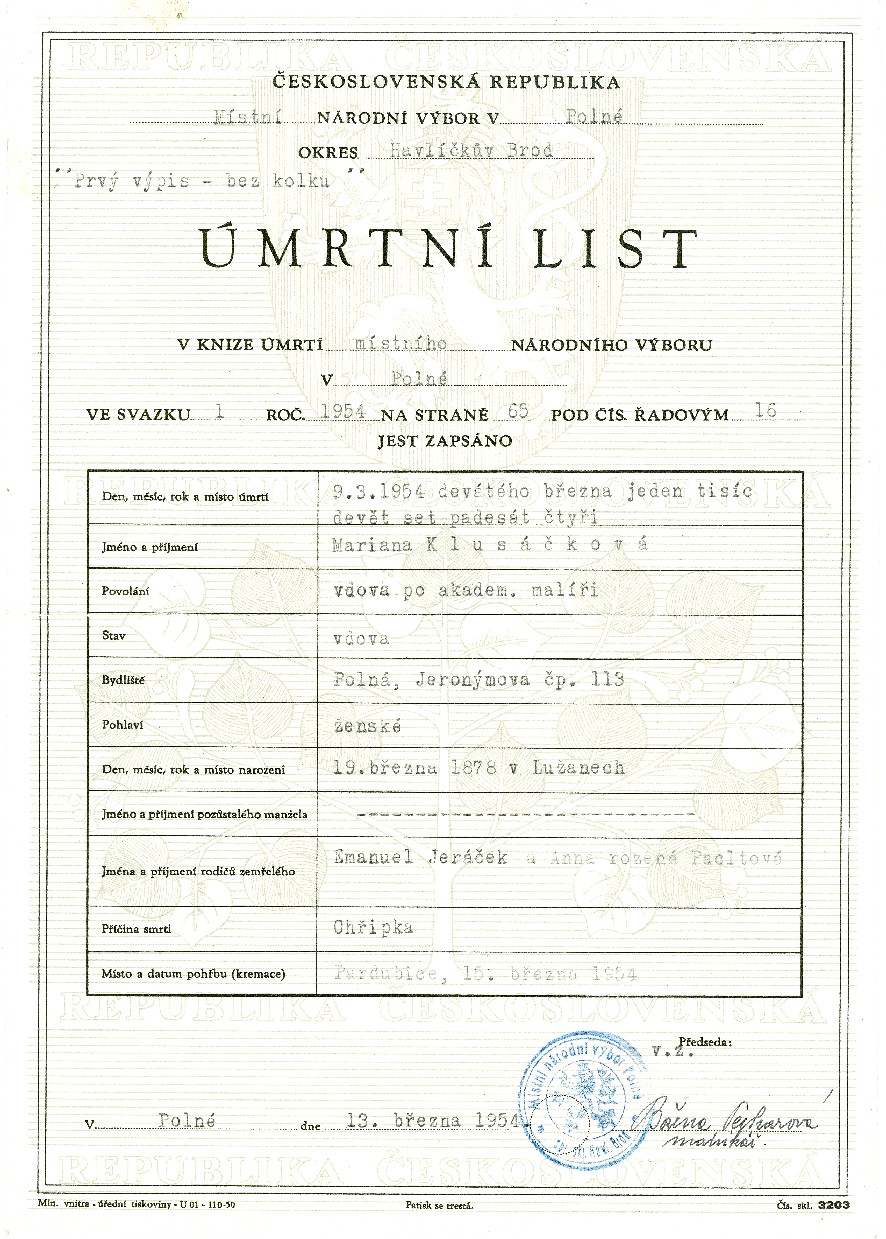 REPUBLIKA ČESKOSLOVENSKÁ
ČESKOSLOVENSKÁ REPUBLIKA
Místní NÁRODNÍ VÝBOR V Polné
OKRES Havlíčkův Brod
"Prvý výpis - bez kolku"
ÚMRTNÍ LIST
V KNIZE ÚMRTÍ místního NÁRODNÍHO VÝBORU
V Polné
VE SVAZKU 1 ROČ. 1954 NA STRANĚ 65 POD ČÍS. ŘADOVÝM 16
JEST ZAPSÁNO
REPUBLIKA ČESKOSLOVENSKÁ
Den, měsíc, rok a místo úmrtí 9.3.1954 devátého března jeden tisíc
devět set padesát čtyři
Jméno a příjmení Mariana K l u s á č k o v á
Povolání vdova po akadem. malíři
Stav vdova
Bydliště Polná, Jeronýmova čp. 113
Pohlaví ženské
Den, měsíc, rok a místo narození 19.března 1878 v Lužanech
Jméno a příjmení pozůstalého manžela --------------------------
Jména a příjmení rodičů zemřelého Emanuel Jeráček a Anna rozená Pacltová
Příčina smrti Chřipka
Místo a datum pohřbu (kremace) Pardubice, 15. března 1954
REPUBLIKA ČESKOSLOVENSKÁ
Předseda:
v.z.
Místní národní výbor Polná
V Polné dne 13. března 1954
matrikář.
REPUBLIKA ČESKOSLOVENSKÁ
Min. vnitra - úřední tiskoviny - U 01 - 110-50 Patisk se trestá. Čís. skl. 3203